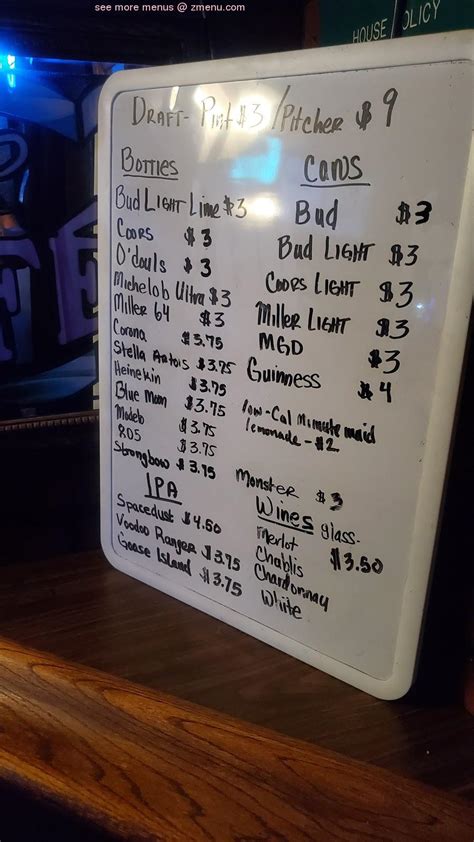 see more menus @ zmenu.com
HOUSE POLICY
DRAFT- Pint $3 / Pitcher $9
BOTTLES
Bud LIGHT Lime $3
COORS $3
O'douls $3
Michelob Ultra $3
Miller 64 $3
Corona $3.75
Stella Artois $3.75
Heinekin $3.75
Blue Moon $3.75
Modelo $3.75
805 $3.75
Strongbow $3.75
IPA
Spacedust $4.50
Voodoo Ranger $3.75
Goose Island $3.75
CANS
Bud $3
Bud LIGHT $3
COORS LIGHT $3
Miller LIGHT $3
MGD $3
Guinness $4
low-Cal Minute maid
lemonade - $2
Monster $3
Wines glass-
Merlot $3.50
Chablis
Chardonnay
White